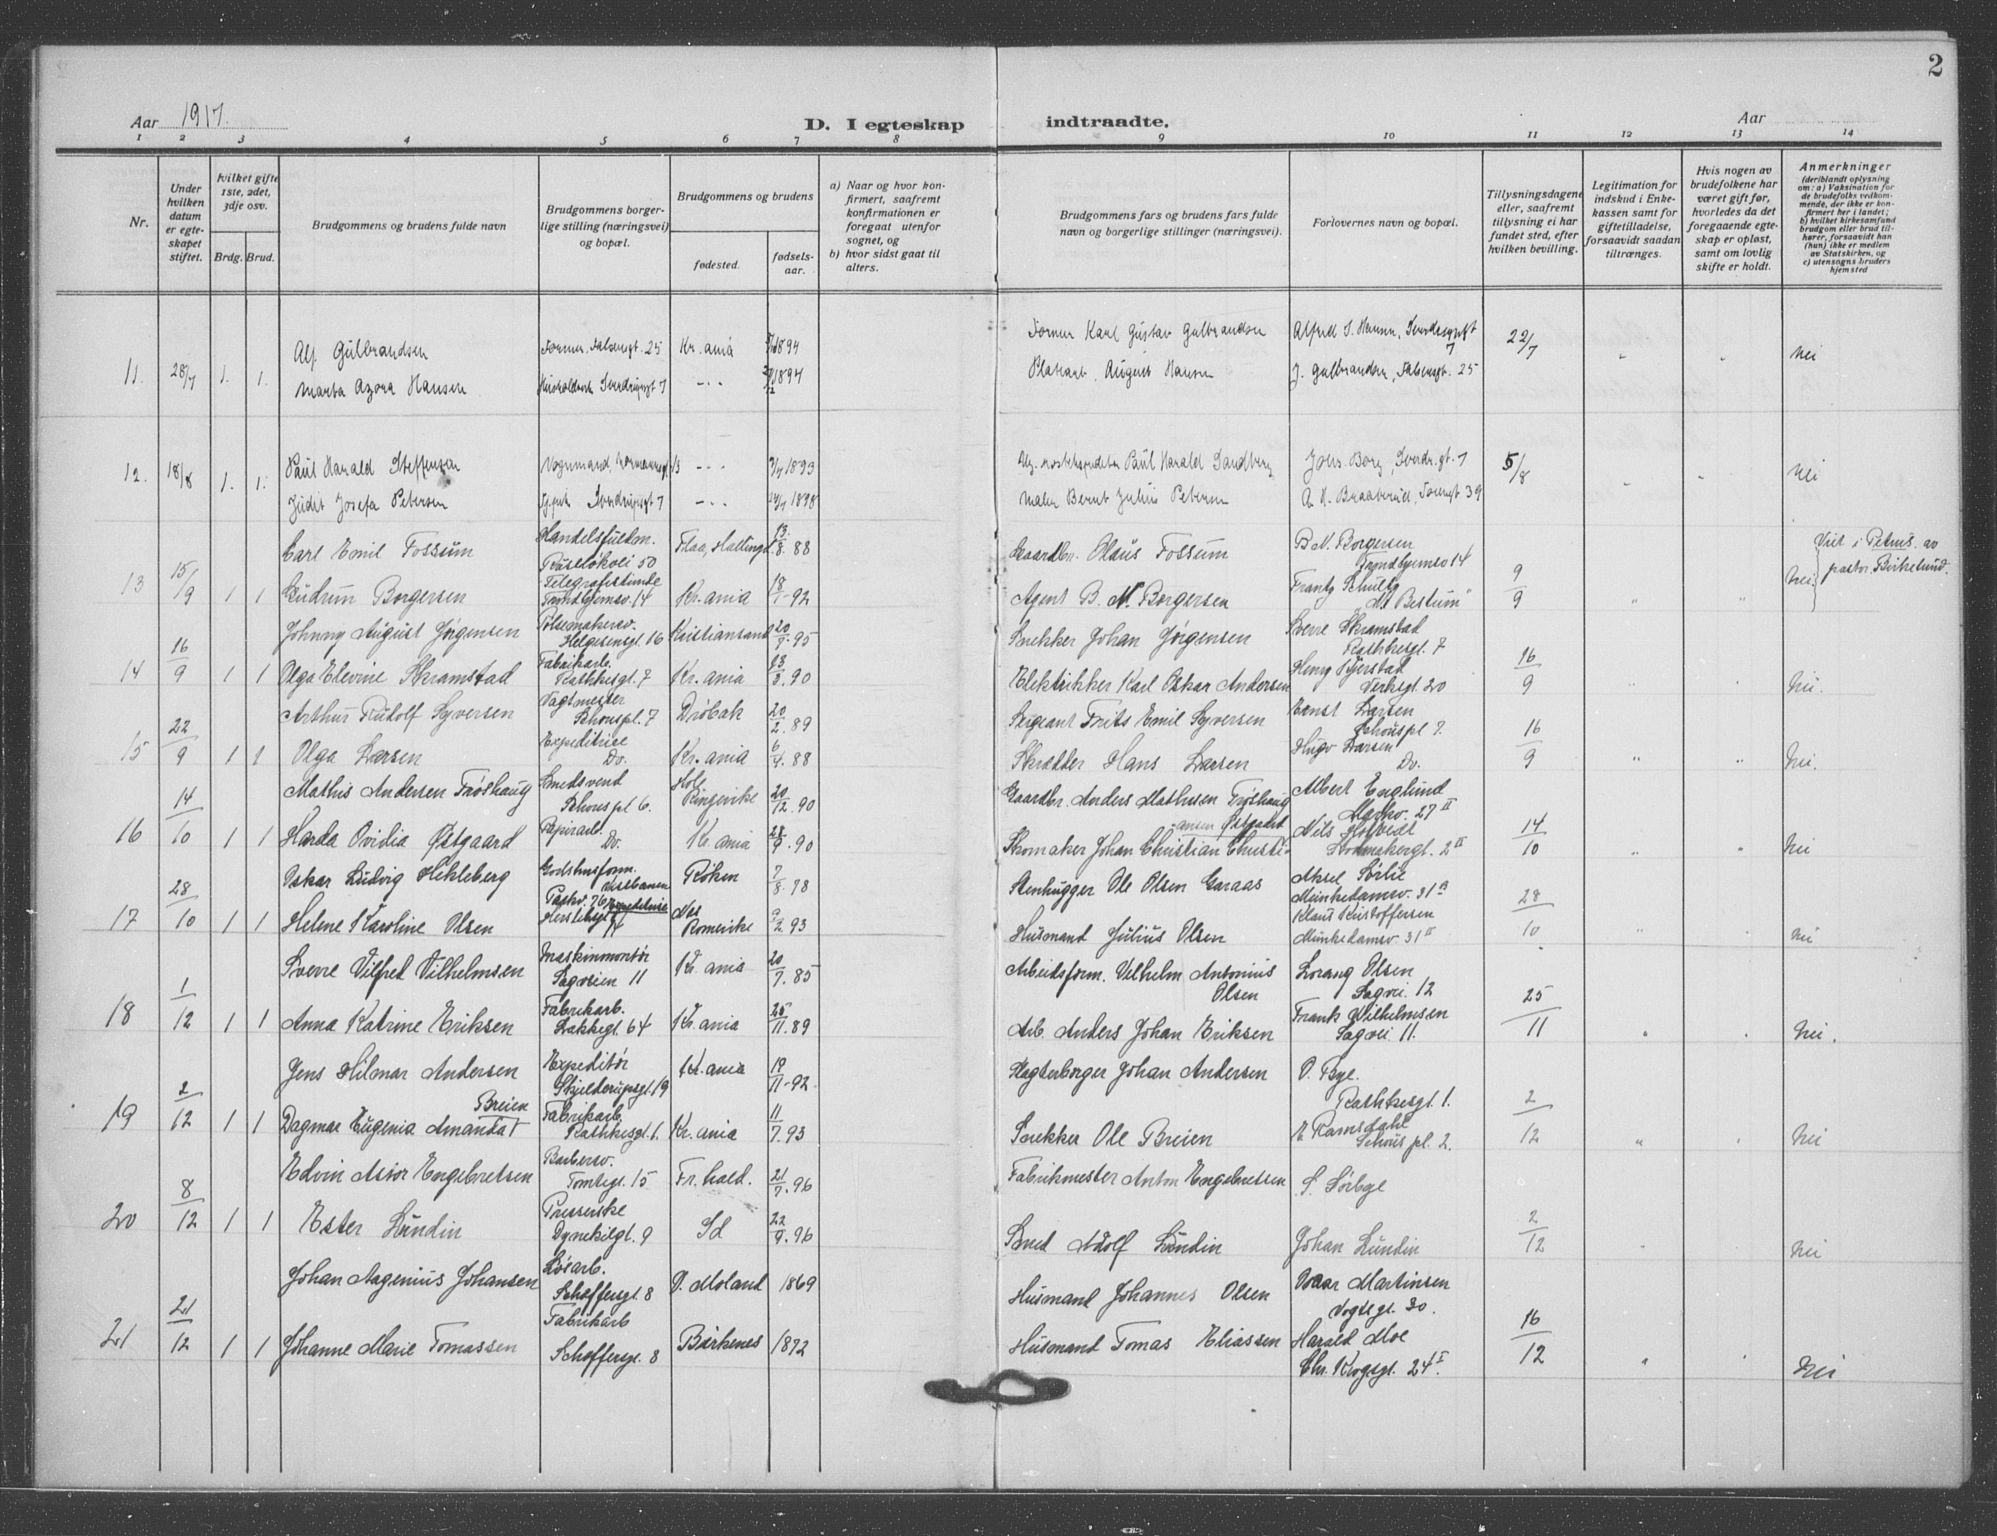 2
Aar 1917.
D. I egteskap indtraadte.
Aar
1 2 3 4 5 6 7 8 9 10 11 12 13 14
Nr.
Under hvilken datum er egteskapet stiftet.
hvilket gifte 1ste, 2det, 3dje osv.
Brdg. Brud.
Brudgommens og brudens fulde navn
Brudgommens borgerlige stilling (næringsvei) og bopæl.
Brudgommens og brudens
fødested.
fødselsaar.
a) Naar og hvor konfirmert, saafremt konfirmationen er foregaat utenfor sognet, og
b) hvor sidst gaat til alters.
Brudgommens fars og brudens fars fulde navn og borgerlige stillinger (næringsvei).
Forlovernes navn og bopæl.
Tillysningsdagene eller, saafremt tillysning ei har fundet sted, efter hvilken bevilling.
Legitimation for indskud i Enkekassen samt for giftetilladelse, forsaavidt saadan tiltrænges.
Hvis nogen av brudefolkene har været gift før, hvorledes da det foregaaende egteskap er opløst, samt om lovlig skifte er holdt.
Anmerkninger
(deriblandt oplysning om: a) Vaksination for de brudefolks vedkommende, der ikke er konfirmert her i landet;
b) hvilket kirkesamfund brudgom eller brud tilhører, forsaavidt han (hun) ikke er medlem av Statskirken, og
c) utensogns bruders hjemsted
Alf Gulbrandsen Former, Falsensgt. 25 Kr.ania 1894 Former Karl Gustav Gulbrandsen Alfred S. Hansen, Sverdrupsgt 7 22/7
11. 28/7 1. 1. Marta Azora Hansen Sverdrupsgt 7 - . - 1894 August Hansen J. Gulbrandsen, Falsensgt. 25 " " Nei
12. 18/8 1. 1. Paul Harald Steffensen Vognmand, - . - 1893 Paul Harald Sandberg Johs. Borg, Sverdr.gt. 7 5/8
Judit Josefa Petersen Sverdrupsgt 7 - . - 1898 Maler Bernt Julius Petersen A. H. Braaterud, 39 " " Nei
Carl Emil Fossum Handelsfuldm. Ruseløkvei 50 Flaa, Hallingd. 13/8 88 Gaardbr. Olaus Fossum B. M. Borgersen Trondhjemsv 14
13 15/9 1 1 Gudrun Borgersen Telegrafistinde Trondhjemsv. 14 Kr.ania 18/1 92 Agent B. M. Borgersen Frantz Schultz "Bestum" 9/9 " " Nei. Viet i Petrus. av pastor Birkelund.
Johnny August Jørgensen Pølsemakersv. Helgesensgt 16 Kristiansand 20/9 95 Snekker Johan Jørgensen Sverre Skramstad Rathkesgt. 7
14 16/9 1 1 Olga Elevine Skramstad Fabrikarb. Rathkesgt. 7 Kr.ania 23/8 90 Elektrikker Karl Oskar Andersen Henry Verksgt 20 16/9 " " Nei.
Arthur Rudolf Syversen Vagtmester Schouspl. 7 Drøbak 20/2 89 Sergeant Frits Emil Syversen Ernst Larsen Schouspl 7.
15 22/9 1 1 Olga Larsen Expeditrice Do. Kr.ania 6/4 88 Skrædder Hans Larsen Hugo Larsen Do. 16/9 " " Nei.
Mathis Andersen Frøshaug Smedsvend Schouspl 6. Hole Ringerike 20/12 90 Gaardbr. Anders Mathisen Frøshaug Albert Englund Markv. 27 II
16 14/10 1 1 Harda Ovidia Østgaard Papirarb. Do. Kr.ania 28/9 90 Skomaker Johan Christian Christiansen Østgaard Nils 2 II 14/10 " " Nei
Oskar Ludvig Hekleberg Godshusform. Vestbanen Parkv. 76 Røken 7/8 78 Stenhugger Ole Olsen Garaas Aksel Sørlie Munkedamsv. 31 B
17 28/10 1 1 Helene Karoline Olsen Nes Romerike 9/2 93 Husmand Julius Olsen Klaus Kristoffersen Munkedamsv. 31 II 28/10 " " Nei
Sverre Vilfred Vilhelmsen Maskinmontør Sagveien 11 Kr.ania 20/7 85 Arbeidsform. Vilhelm Antonius Olsen Lorang Olsen Sagvei. 12
18 1/12 1 1 Anna Katrine Eriksen Fabrikarb. Lakkegt 64 Kr.ania 25/11 89 Arb. Anders Johan Eriksen Frank Wilhelmsen Sagvei 11. 25/11 " " Nei.
Jens Hilmar Andersen Expeditør Skjelderupsgt. 19 Kr.ania 19/11 92 Johan Andersen O. Bye. Rathkesgt. 1.
19 2/12 1 1 Dagmar Eugenia Amanda Breien Fabrikarb. Rathkesgt. 1. Kr.ania 11/7 93 Snekker Ole Breien E Ramsdahl Schouspl. 2. 2/12 " " Nei
Edvin Astor Engebretsen Barbersv. Tomtegt. 15 Fr.hald. 21/7 96 Fabrikmester Anton Engebretsen S. Sørbye
20 8/12 1 1 Ester Lundin Presserske Dynekilgt. 9 Id 22/9 96 Smed Adolf Lundin Johan Lundin 2/12 " " Nei
Johan Aagenius Johansen Løsarb. Schøffersgt 8 Ø. Moland 1869 Husmand Johannes Olsen Martinsen Vogtsgt 30.
21 21/12 1 1 Johanne Marie Tomassen Fabrikarb Schøffersgt. 8 Birkenes 1872 Husmand Tomas Eliassen Harald Moe Chr. Krogsgt. 24 I. 16/12 " " Nei